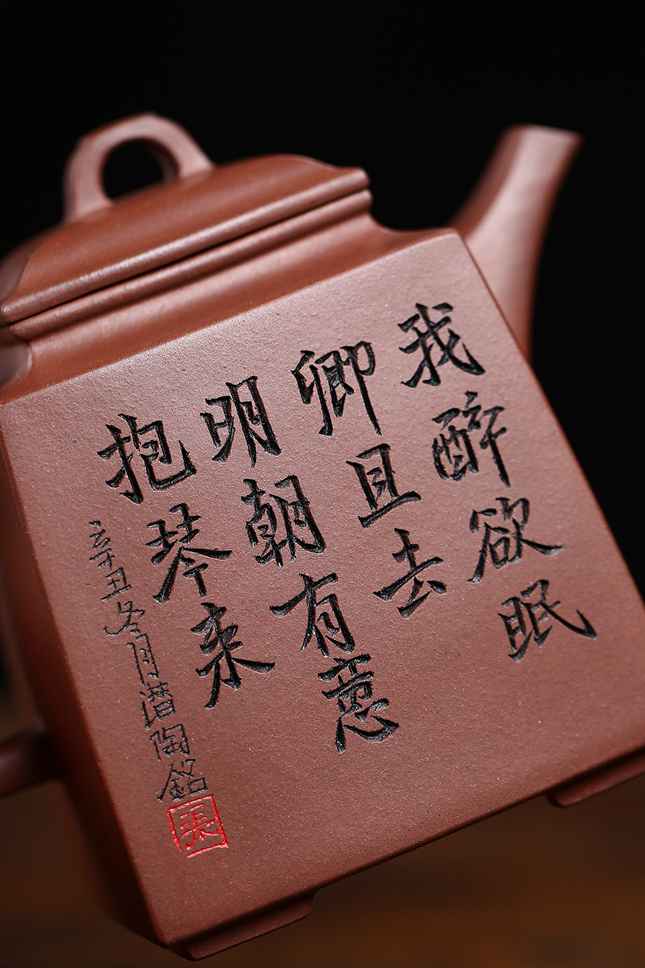 我醉欲眠
卿且去
明朝有意
抱琴来
辛丑冬月谱陶銘
張